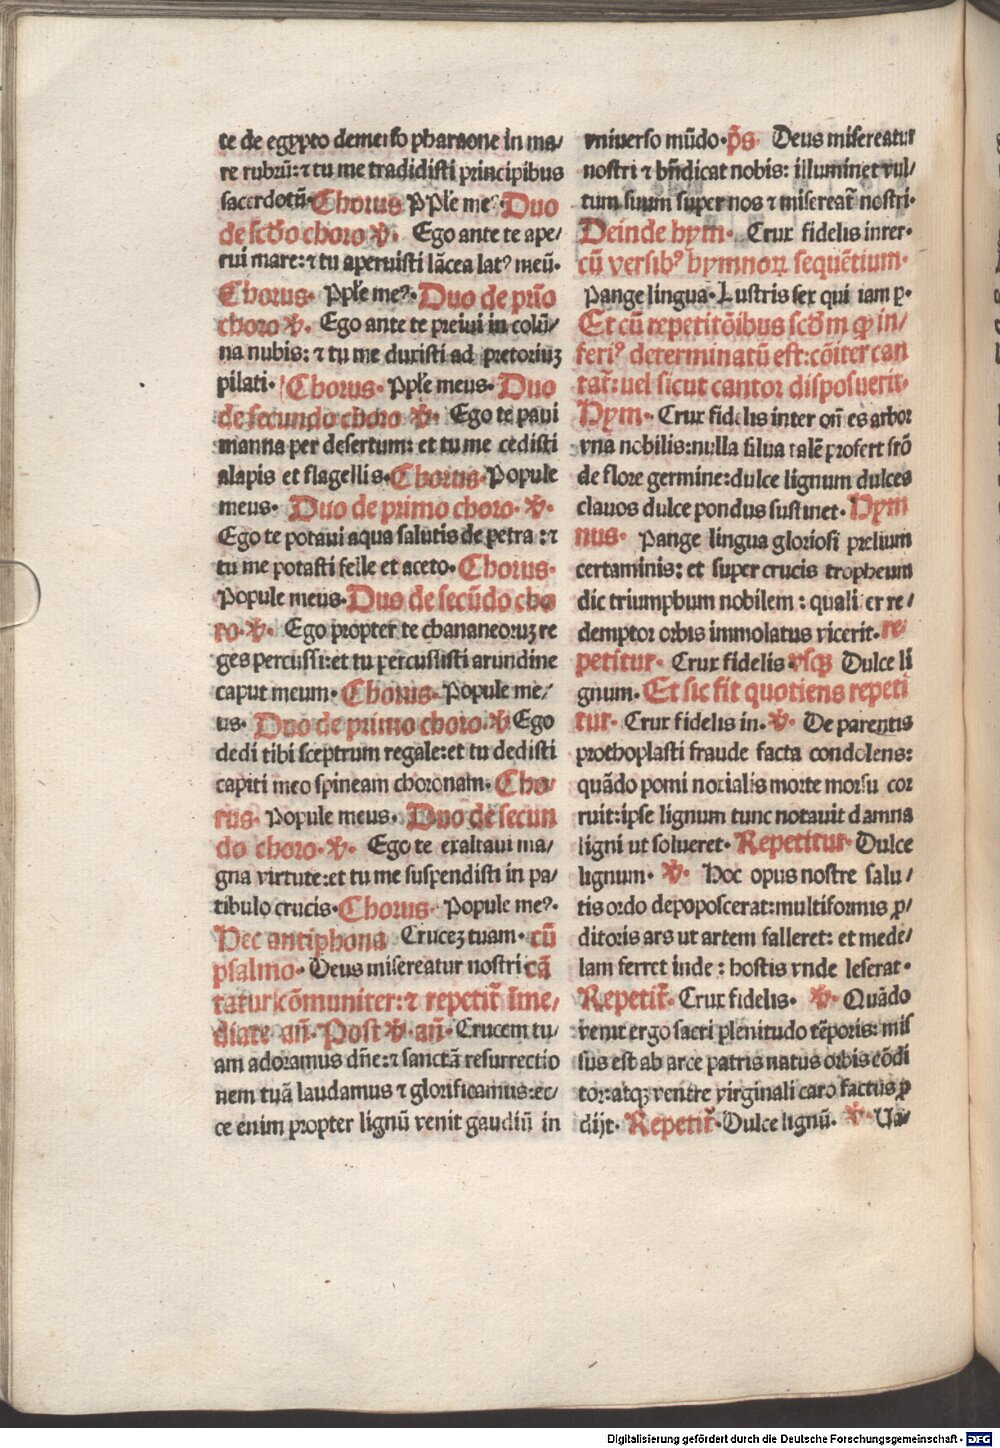 te de egypto demerso pharaone in ma/
re rubrū: ⁊ tu me tradidisti principibus
sacerdotū. Chorus Pple meꝰ. Duo
de scd̄o choro ℣. Ego ante te ape/
rui mare: ⁊ tu aperuisti lācea latꝰ meū.
Chorus. Pple meꝰ. Duo de prīo
choro ℣. Ego ante te preiui in colū/
na nubis: ⁊ tu me duxisti ad pretoriuꝫ
pilati. Chorus. Pple meus. Duo
de secundo choro ℣. Ego te paui
manna per desertum: et tu me cedisti
alapis et flagellis. Chorus. Popule
meus. Duo de primo choro. ℣.
Ego te potaui aqua salutis de petra: ⁊
tu me potasti felle et aceto. Chorus.
Popule meus. Duo de secūdo cho
ro. ℣. Ego propter te chananeoruꝫ re
ges percussi: et tu percussisti arundine
caput meum. Chorus. Popule me/
us. Duo de primo choro. ℣ Ego
dedi tibi sceptrum regale: et tu dedisti
capiti meo spineam choronam. Cho/
rus. Popule meus. Duo de secun
do choro. ℣. Ego te exaltaui ma/
gna virtute: et tu me suspendisti in pa/
tibulo crucis. Chorus. Popule meꝰ.
Hec antiphona Cruceꝫ tuam. cū
psalmo. Deus misereatur nostri cā
tatur cōmuniter: ⁊ repetit̄ īme/
diate añ. Post ℣. añ. Crucem tu/
am adoramus dn̄e: ⁊ sanctā resurrectio
nem tuā laudamus ⁊ glorificamus: ec/
ce enim propter lignū venit gaudiū in
vniuerso mūdo. p̄s. Deus misereatur
nostri ⁊ bn̄dicat nobis: illuminet vul/
tum suum super nos ⁊ misereat̄ nostri.
Deinde hym. Crux fidelis inter.
cū versibꝰ hymnoꝝ sequētium.
Pange lingua. Lustris sex qui iam ꝑ.
Et cū repetitōibus scd̄m ꝙ in/
feriꝰ determinatū est: cōiter can
tat̄: uel sicut cantor disposuerit.
Hym. Crux fidelis inter oñ es arbor
vna nobilis: nulla silua talē profert frō
de flore germine: dulce lignum dulces
clauos dulce pondus sustinet. Hym
nus. Pange lingua gloriosi prelium
certaminis: et super crucis tropheum
dic triumphum nobilem: qualiter re/
demptor orbis immolatus vicerit. re/
petitur. Crux fidelis vsqꝫ Dulce li
gnum. Et sic fit quotiens repeti
tur. Crux fidelis in. ℣. De parentis
prothoplasti fraude facta condolens:
quādo pomi noxialis morte morsu cor
ruit: ipse lignum tunc notauit damna
ligni ut solueret. Repetitur. Dulce
lignum. ℣. Hoc opus nostre salu/
tis ordo depoposcerat: multiformis ꝓ/
ditoris ars ut artem falleret: et mede/
lam ferret inde: hostis vnde leserat.
Repetit̄. Crux fidelis. ℣. Quādo
venit ergo sacri plenitudo tēporis: mis
sus est ab arce patris natus orbis cōdi
tor: atqꝫ ventre virginali caro factus ꝓ
dijt. Repetit̄. Dulce lignū. ℣. Ua/
Digitalisierung gefördert durch die Deutsche Forschungsgemeinschaft - DFG